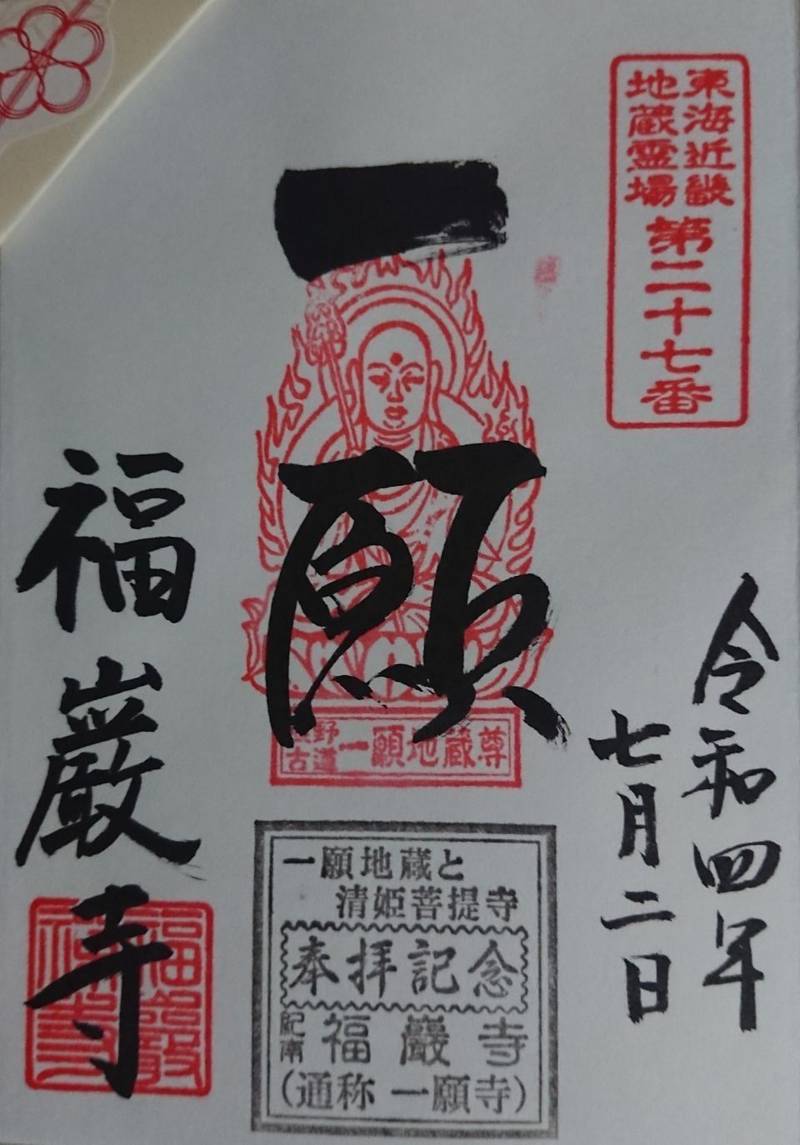 東海近畿
地蔵霊場
第二十七番
令和四年
七月二日
一願
野
古道
一願地蔵尊
福巖寺
一願地蔵と
清姫菩提寺
奉拝記念
紀南
福巖寺
(通称 一願寺)